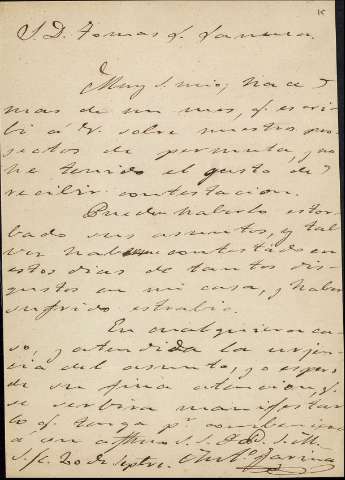 15
S. D. Tomas G. Zamora.
Muy S. mio; hace
mas de un mes, q. escri-
bi á V. sobre nuestro pro-
yectos de permuta, y no
he tenido el gusto de
recibir contestacion.
Puede haberlo estor-
bado sus asuntos, y tal
vez haber contestado en
estos dias de tantos dis-
gustos en mi casa, y haber
sufrido estrabio.
En cualquiera ca-
so, y atendida la urjen-
cia del asunto, yo espero
de su fina atencion, q.
se serbira manifestar
lo q. tenga pr. combeniente
á su affmo S. S. Q. B. S. M.
S/c. 20 de Septre. Farina